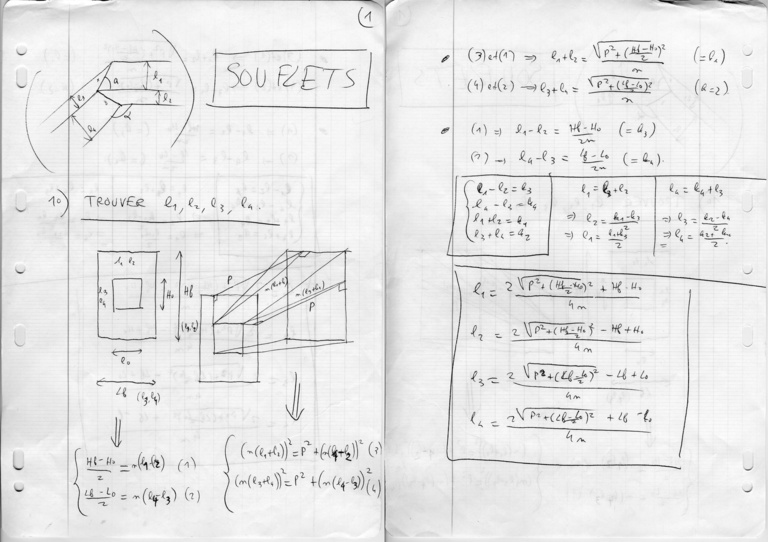 1
SOUFLETS
a
l1
l2
l3
l4
α
1°) TROUVER l1, l2, l3, l4.
l1 l2
l3
l4
H0
Hf
(l1, l2)
l0
Lf (l3, l4)
P
n(l1+l2)
n(l3+l4)
P
{ (Hf-H0)/2 = n(l1-l2) (1)
(Lf-L0)/2 = n(l4-l3) (2)
{ (n(l1+l2))² = P² + (n(l1-l2))² (3)
(n(l3+l4))² = P² + (n(l4-l3))² (4)
• (3) et (1) ⇒ l1+l2 = √(P²+((Hf-H0)/2)²)/n (=k1)
(4) et (2) ⇒ l3+l4 = √(P²+((Lf-L0)/2)²)/n (k=2)
• (1) ⇒ l1-l2 = (Hf-H0)/2n (=k3)
(2) → l4-l3 = (Lf-L0)/2n (=k4).
{ l1-l2 = k3
l4-l3 = k4
l1+l2 = k1
l3+l4 = k2
l1 = k3+l2
⇒ l2 = (k1-k3)/2
⇒ l1 = (k1+k3)/2
l4 = k4+l3
⇒ l3 = (k2-k4)/2
⇒ l4 = (k2+k4)/2
l1 = (2√(P²+((Hf-H0)/2)²) + Hf-H0)/4n
l2 = (2√(P²+((Hf-H0)/2)²) - Hf+H0)/4n
l3 = (2√(P²+((Lf-L0)/2)²) - Lf+L0)/4n
l4 = (2√(P²+((Lf-L0)/2)²) + Lf-L0)/4n